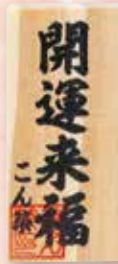 開運来福
こん猿